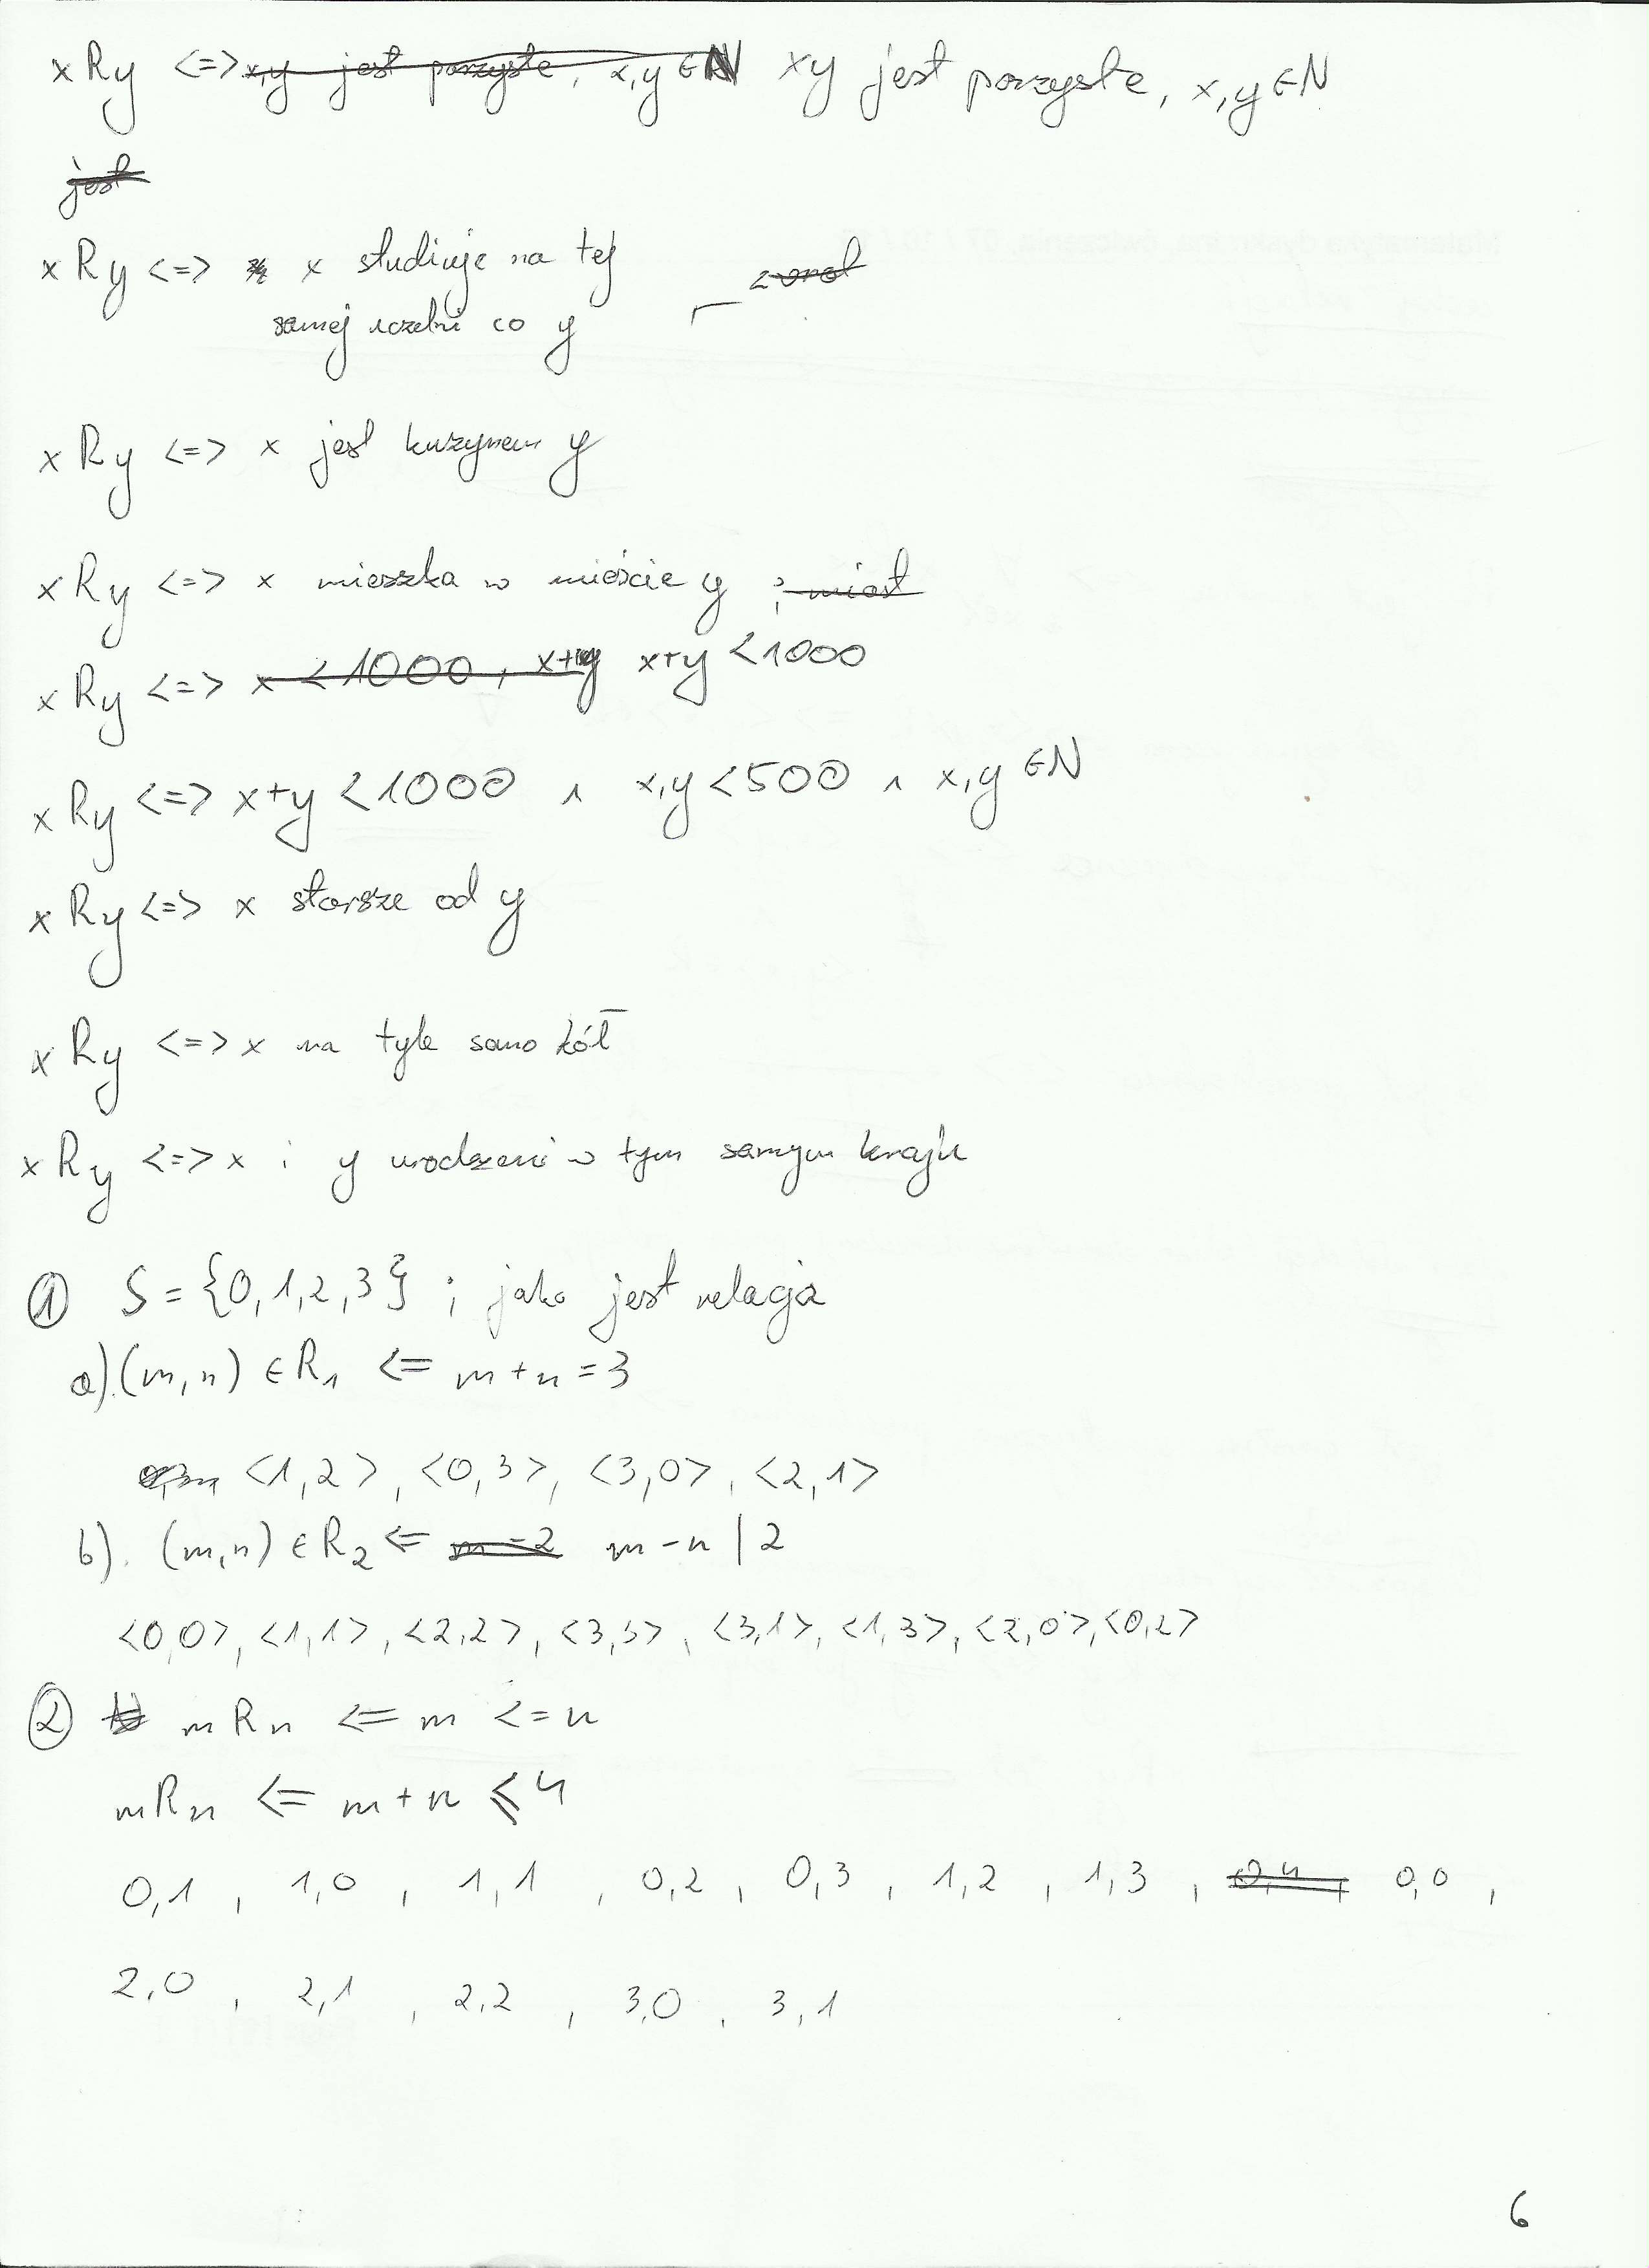 xRy <=> x,y jest parzyste, x,y ∈ N xy jest parzyste, x,y ∈ N
jest
xRy <=> x studiuje na tej
samej uczelni co y
xRy <=> x jest kuzynem y
xRy <=> x mieszka w mieście y ; miast
xRy <=> x < 1000, x+y x+y < 1000
xRy <=> x+y < 1000 ∧ x,y < 500 ∧ x,y ∈ N
xRy <=> x starsze od y
xRy <=> x ma tyle samo kół
xRy <=> x i y urodzeni w tym samym kraju
① S = {0,1,2,3} ; jaka jest relacja
a). (m,n) ∈ R₁ <= m+n=3
<1,2>, <0,3>, <3,0>, <2,1>
b). (m,n) ∈ R₂ <= m=2 m-n | 2
<0,0>, <1,1>, <2,2>, <3,3>, <3,1>, <1,3>, <2,0>, <0,2>
② mRn <= m <= n
mRn <= m+n ≤ 4
0,1 , 1,0 , 1,1 , 0,2 , 0,3 , 1,2 , 1,3 , 0,4 , 0,0 ,
2,0 , 2,1 , 2,2 , 3,0 , 3,1
6